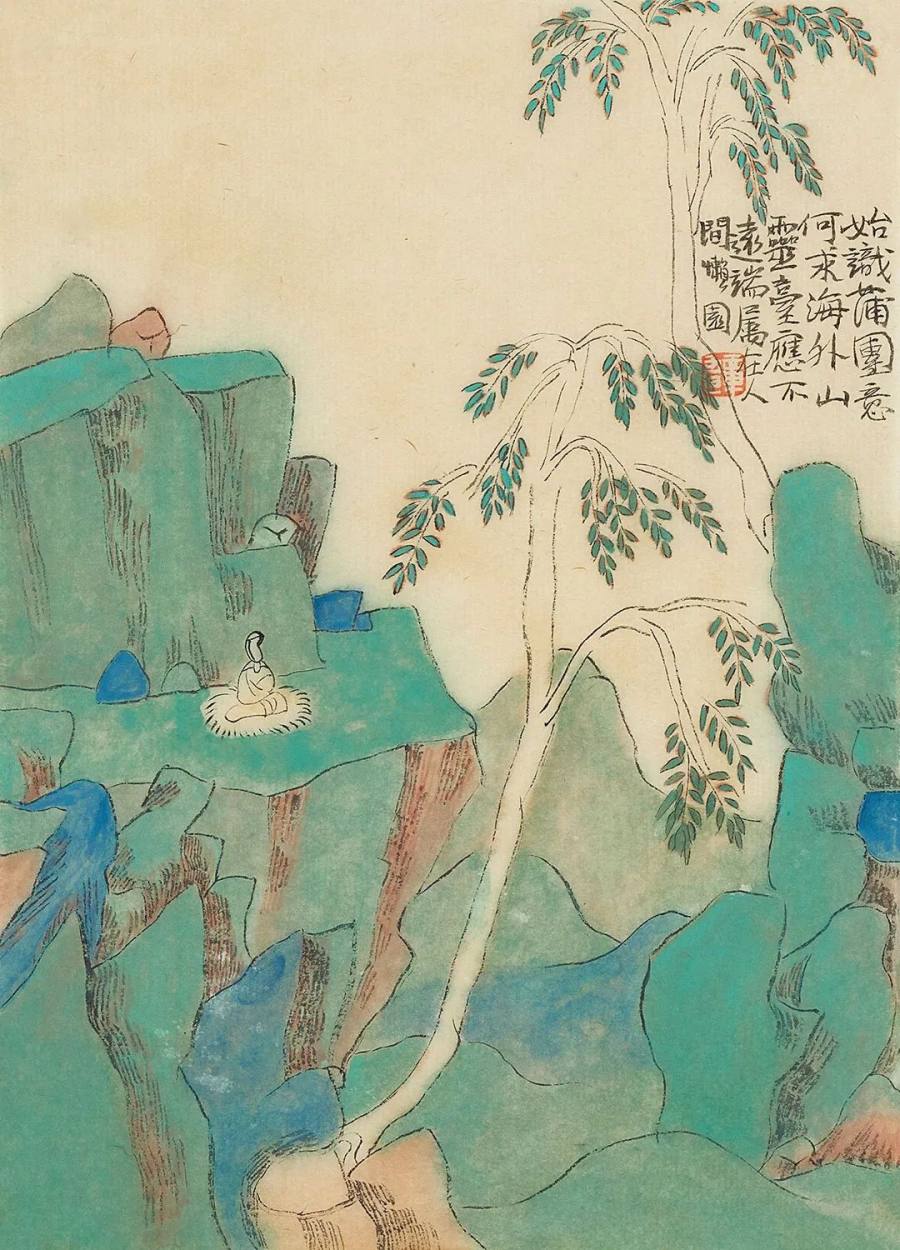 始識蒲團意
何求海外山
靈臺應不
遠端屬在人
間懶園